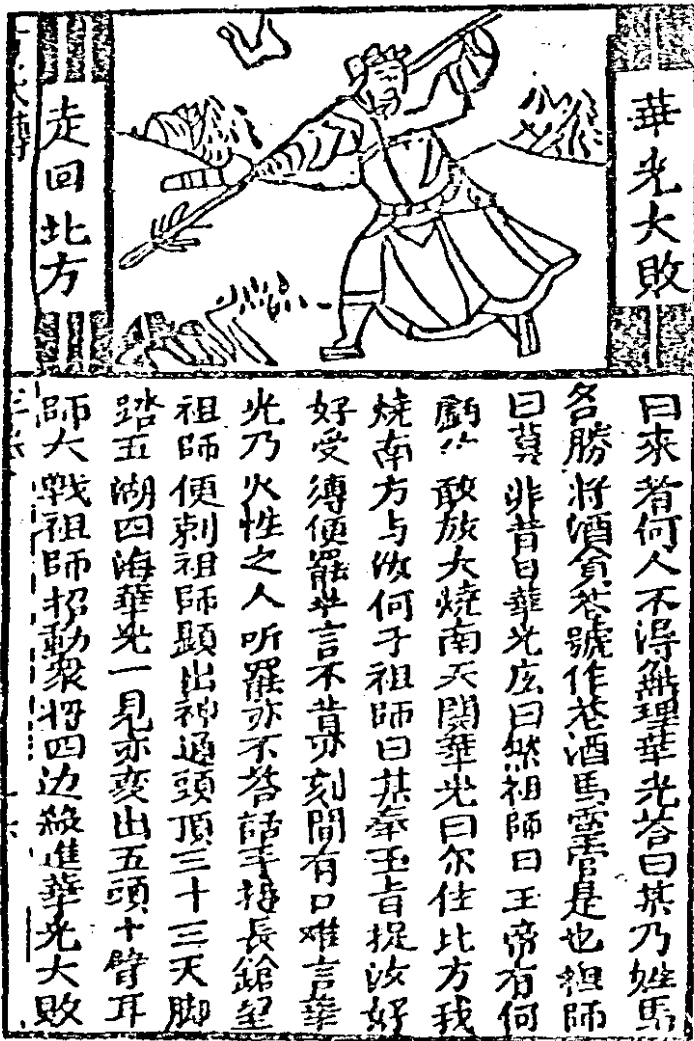 華光大敗
走回北方
曰來者何人不得無理華光荅曰某乃姓馬
名勝將酒貪花號作花酒馬靈官是也祖師
曰莫非昔日華光広曰然祖師曰玉帝有何
虧你敢放火燒南天関華光曰尔住北方我
燒南方与汝何干祖師曰某奉玉旨捉汝好
好受縛便罷半言不肯刻間有口难言華
光乃火性之人听罷亦不荅話手提長鎗望
祖師便刺祖師顕出神通頭頂三十三天脚
踏五湖四海華光一見亦変出五頭十臂耳
師大戰祖師招動衆将四边殺進華光大敗